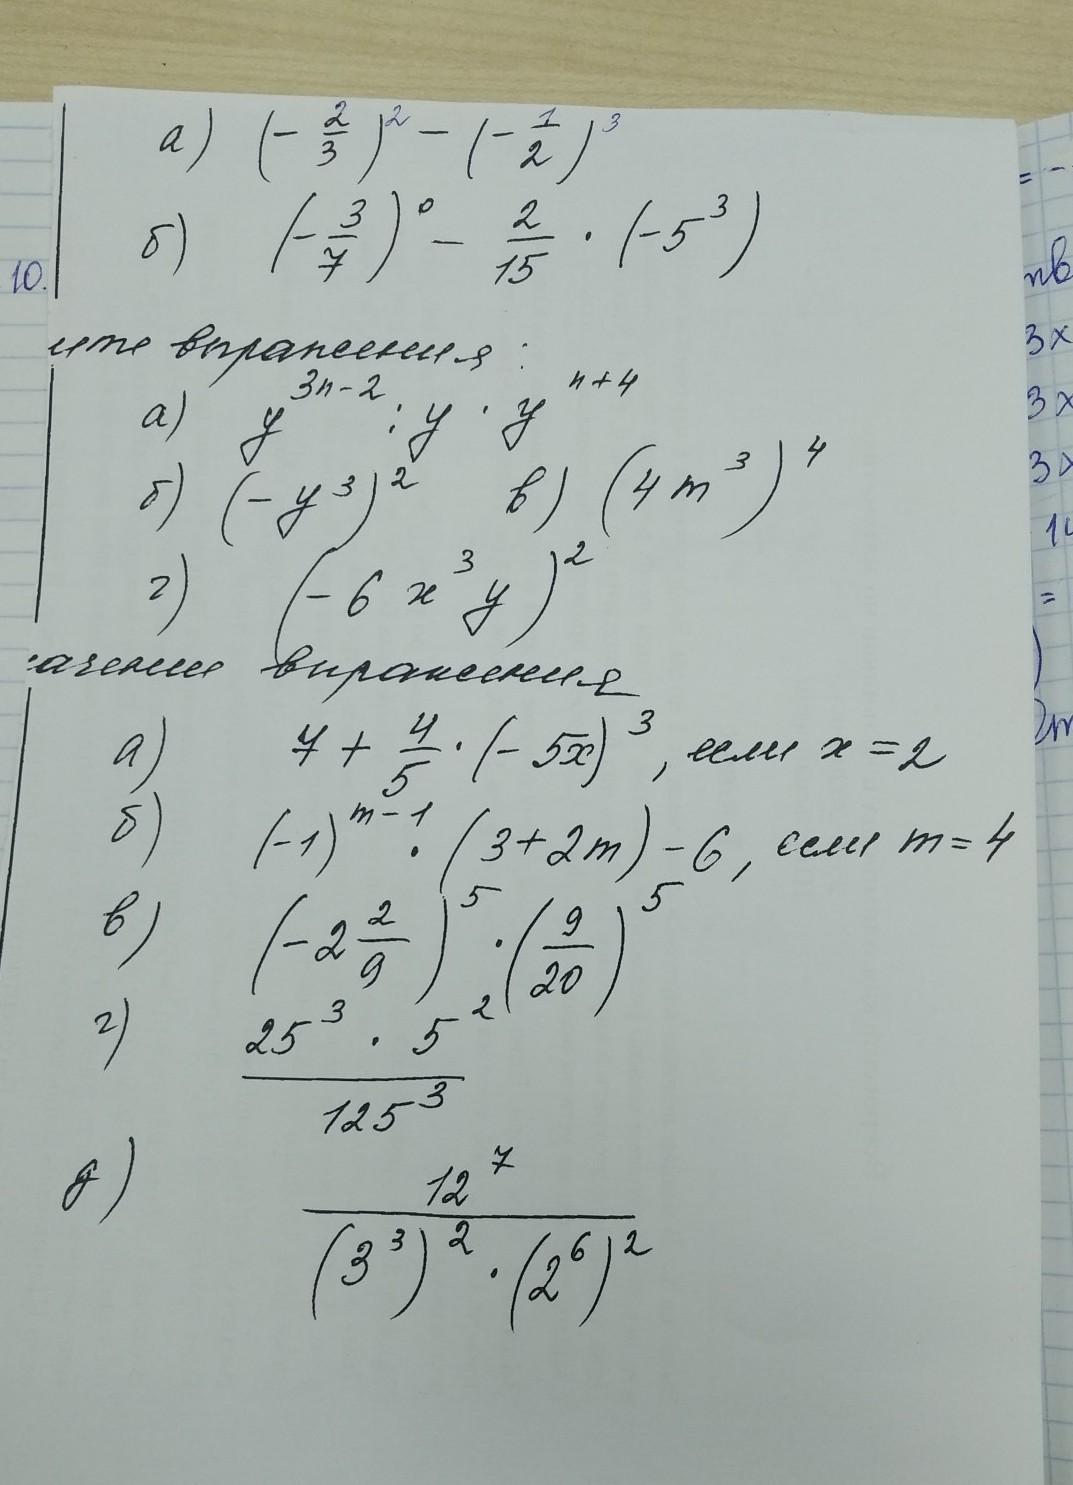 а) (-2/3)² - (-1/2)³
б) (-3/7)⁰ - 2/15 · (-5³)
10.
ите выражения:
а) y³ⁿ⁻² : y · yⁿ⁺⁴
б) (-y³)² в) (4m³)⁴
г) (-6x³y)²
ачение выражения
а) 7 + 4/5 · (-5x)³, если x = 2
б) (-1)ᵐ⁻¹ · (3+2m) - 6, если m = 4
в) (-2 2/9)⁵ · (9/20)⁵
г) 25³ · 5² / 125³
д) 12⁷ / (3³)² · (2⁶)²
= -
3x
3x
3x
=
)
2m